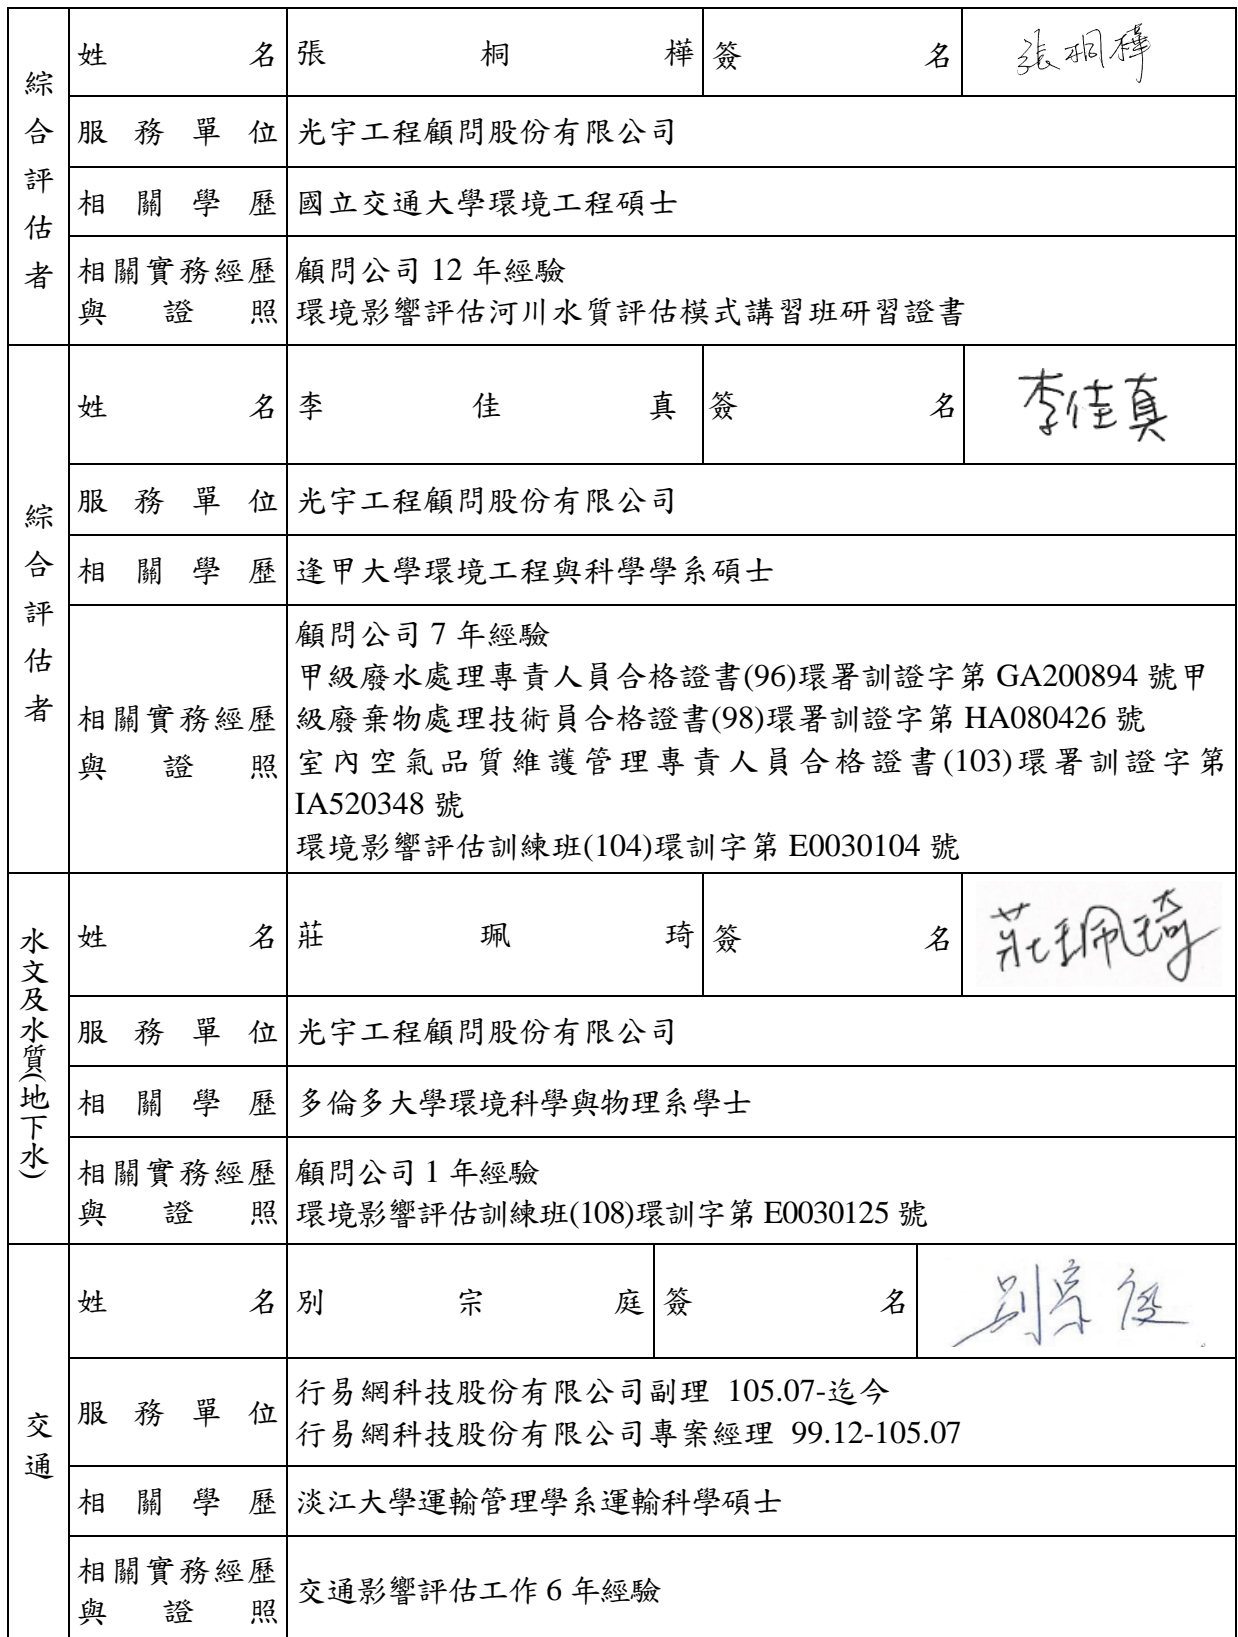 綜合評估者
姓名 張桐樺 簽名 張桐樺
服務單位 光宇工程顧問股份有限公司
相關學歷 國立交通大學環境工程碩士
相關實務經歷與證照 顧問公司 12 年經驗
環境影響評估河川水質評估模式講習班研習證書
綜合評估者
姓名 李佳真 簽名 李佳真
服務單位 光宇工程顧問股份有限公司
相關學歷 逢甲大學環境工程與科學學系碩士
相關實務經歷與證照 顧問公司 7 年經驗
甲級廢水處理專責人員合格證書(96)環署訓證字第 GA200894 號甲
級廢棄物處理技術員合格證書(98)環署訓證字第 HA080426 號
室內空氣品質維護管理專責人員合格證書(103)環署訓證字第
IA520348 號
環境影響評估訓練班(104)環訓字第 E0030104 號
水文及水質(地下水)
姓名 莊珮琦 簽名 莊珮琦
服務單位 光宇工程顧問股份有限公司
相關學歷 多倫多大學環境科學與物理系學士
相關實務經歷與證照 顧問公司 1 年經驗
環境影響評估訓練班(108)環訓字第 E0030125 號
交通
姓名 別宗庭 簽名 別宗庭
服務單位 行易網科技股份有限公司副理 105.07-迄今
行易網科技股份有限公司專案經理 99.12-105.07
相關學歷 淡江大學運輸管理學系運輸科學碩士
相關實務經歷與證照 交通影響評估工作 6 年經驗